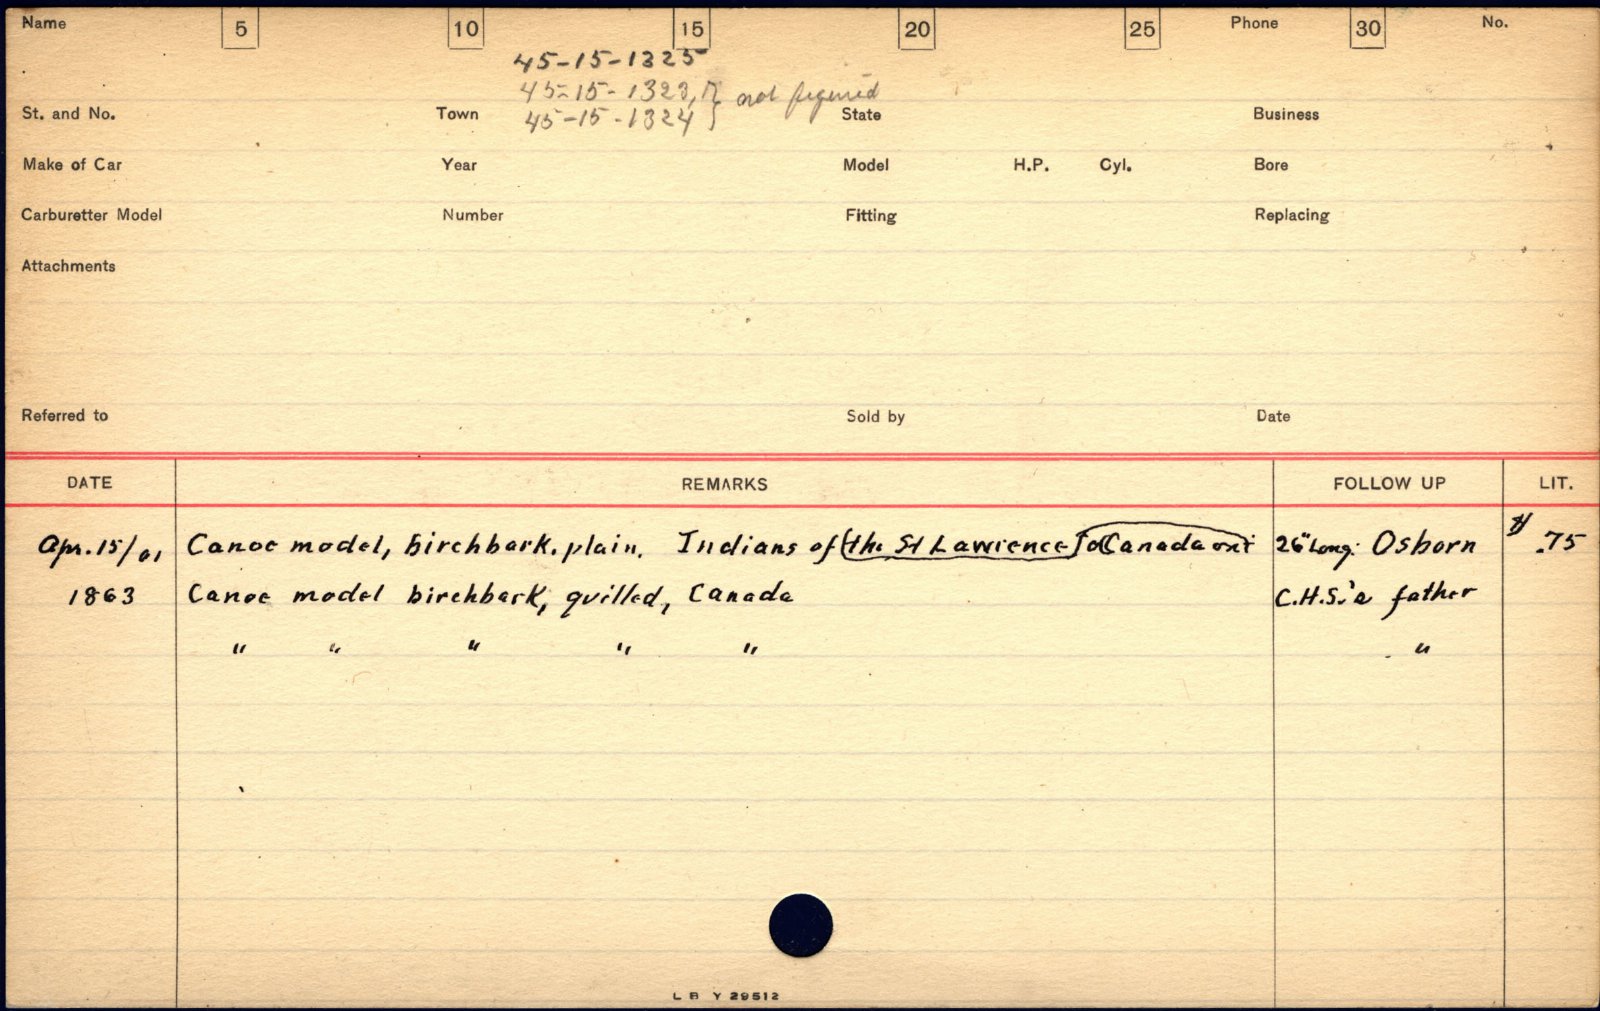 Name 5 10 15 20 25 Phone 30 No.
45-15-1325
45-15-1323, } not figured
45-15-1324
St. and No. Town State Business
Make of Car Year Model H.P. Cyl. Bore
Carburetter Model Number Fitting Replacing
Attachments
Referred to Sold by Date
DATE REMARKS FOLLOW UP LIT.
Apr. 15/01 Canoe model, birchbark, plain. Indians of [the St Lawrence] Canada 26" long. Osborn $ .75
1863 Canoe model birchbark, quilled, Canada C.H.S.'s father
" " " " " "
L B Y 29512